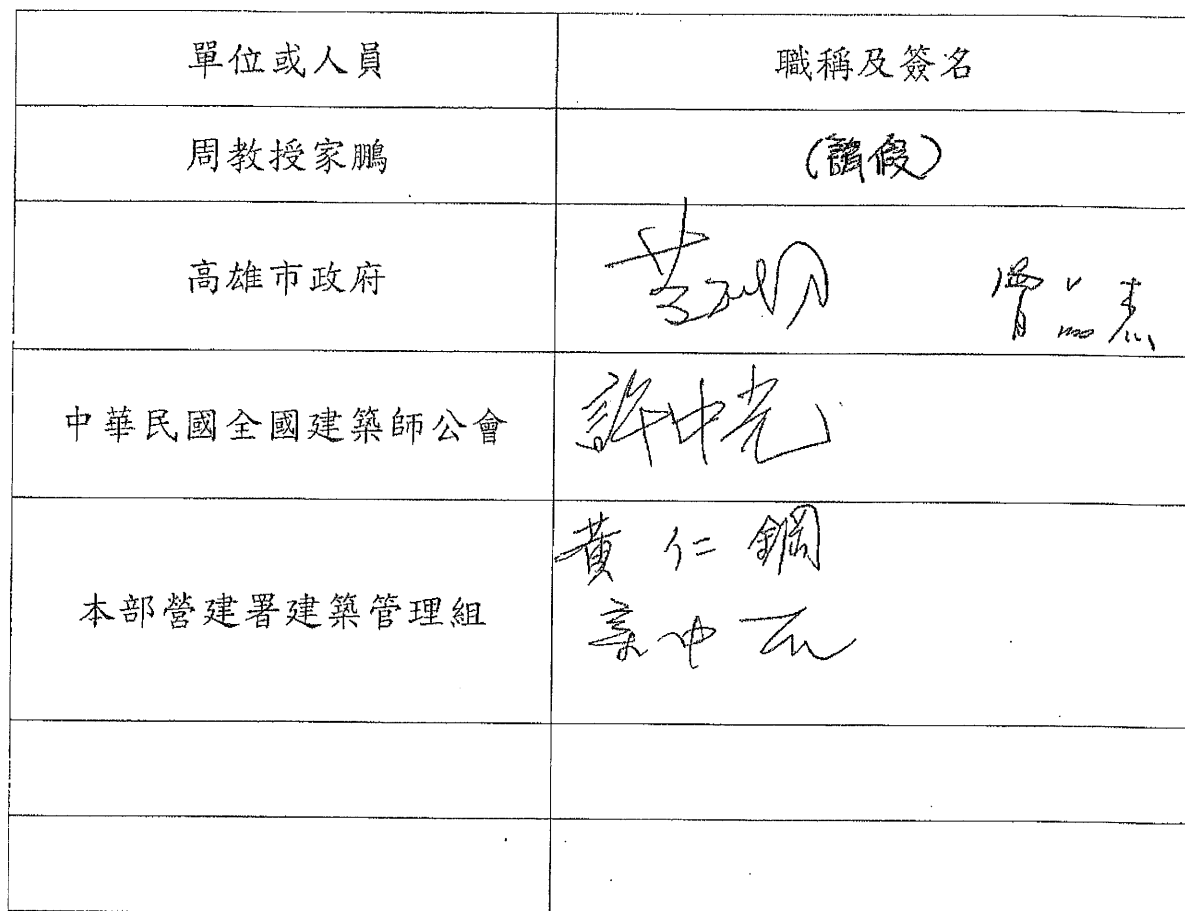 單位或人員
職稱及簽名
周教授家鵬
(請假)
高雄市政府
曾品杰
中華民國全國建築師公會
許中光
本部營建署建築管理組
黃仁鋼